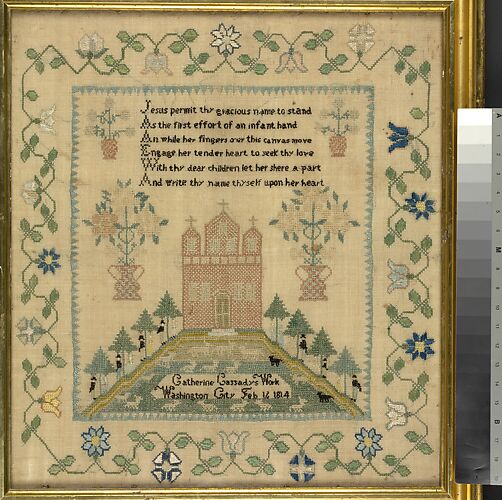 Jesus permit thy gracious name to stand
As the first effort of an infant hand
An while her fingers over this canvas move
Engage her tender heart to seek thy love
With thy dear children let her shere a part
And write thy name thyself upon her heart
Catherine Cassadys Work
Washington City Feb 16 1814